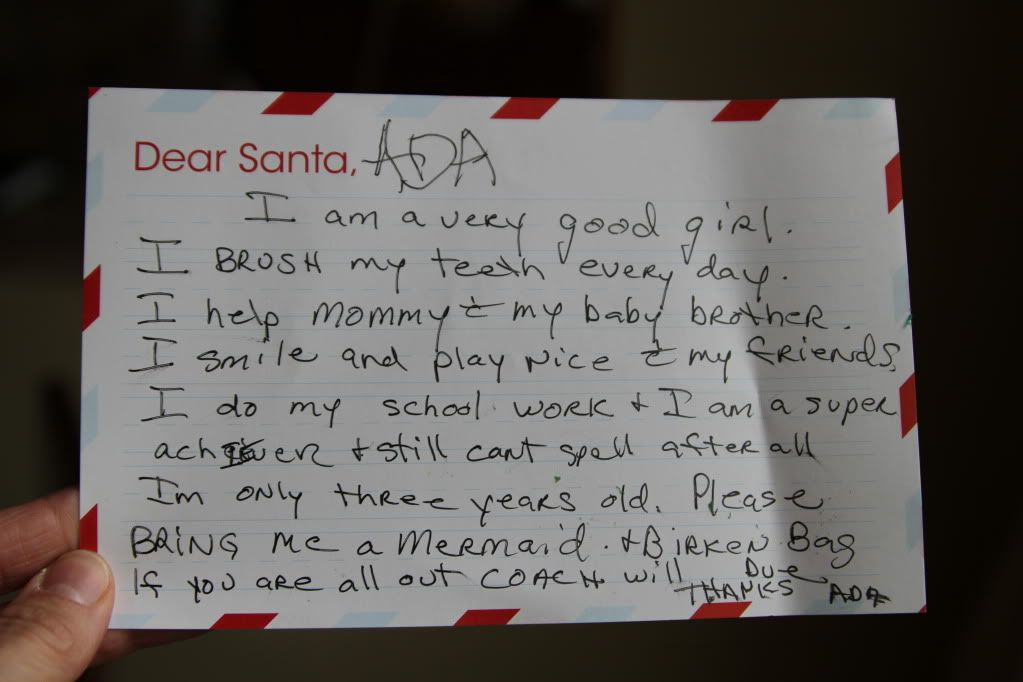 Dear Santa, ADA
I am a very good girl.
I BRUSH my teeth every day.
I help mommy & my baby brother.
I smile and play nice & my friends.
I do my school work & I am a super
achiever & still cant spell after all
Im only three years old. Please
BRING me a mermaid. & BIRKEN Bag
If you are all out COACH will Due
THANKS ADA